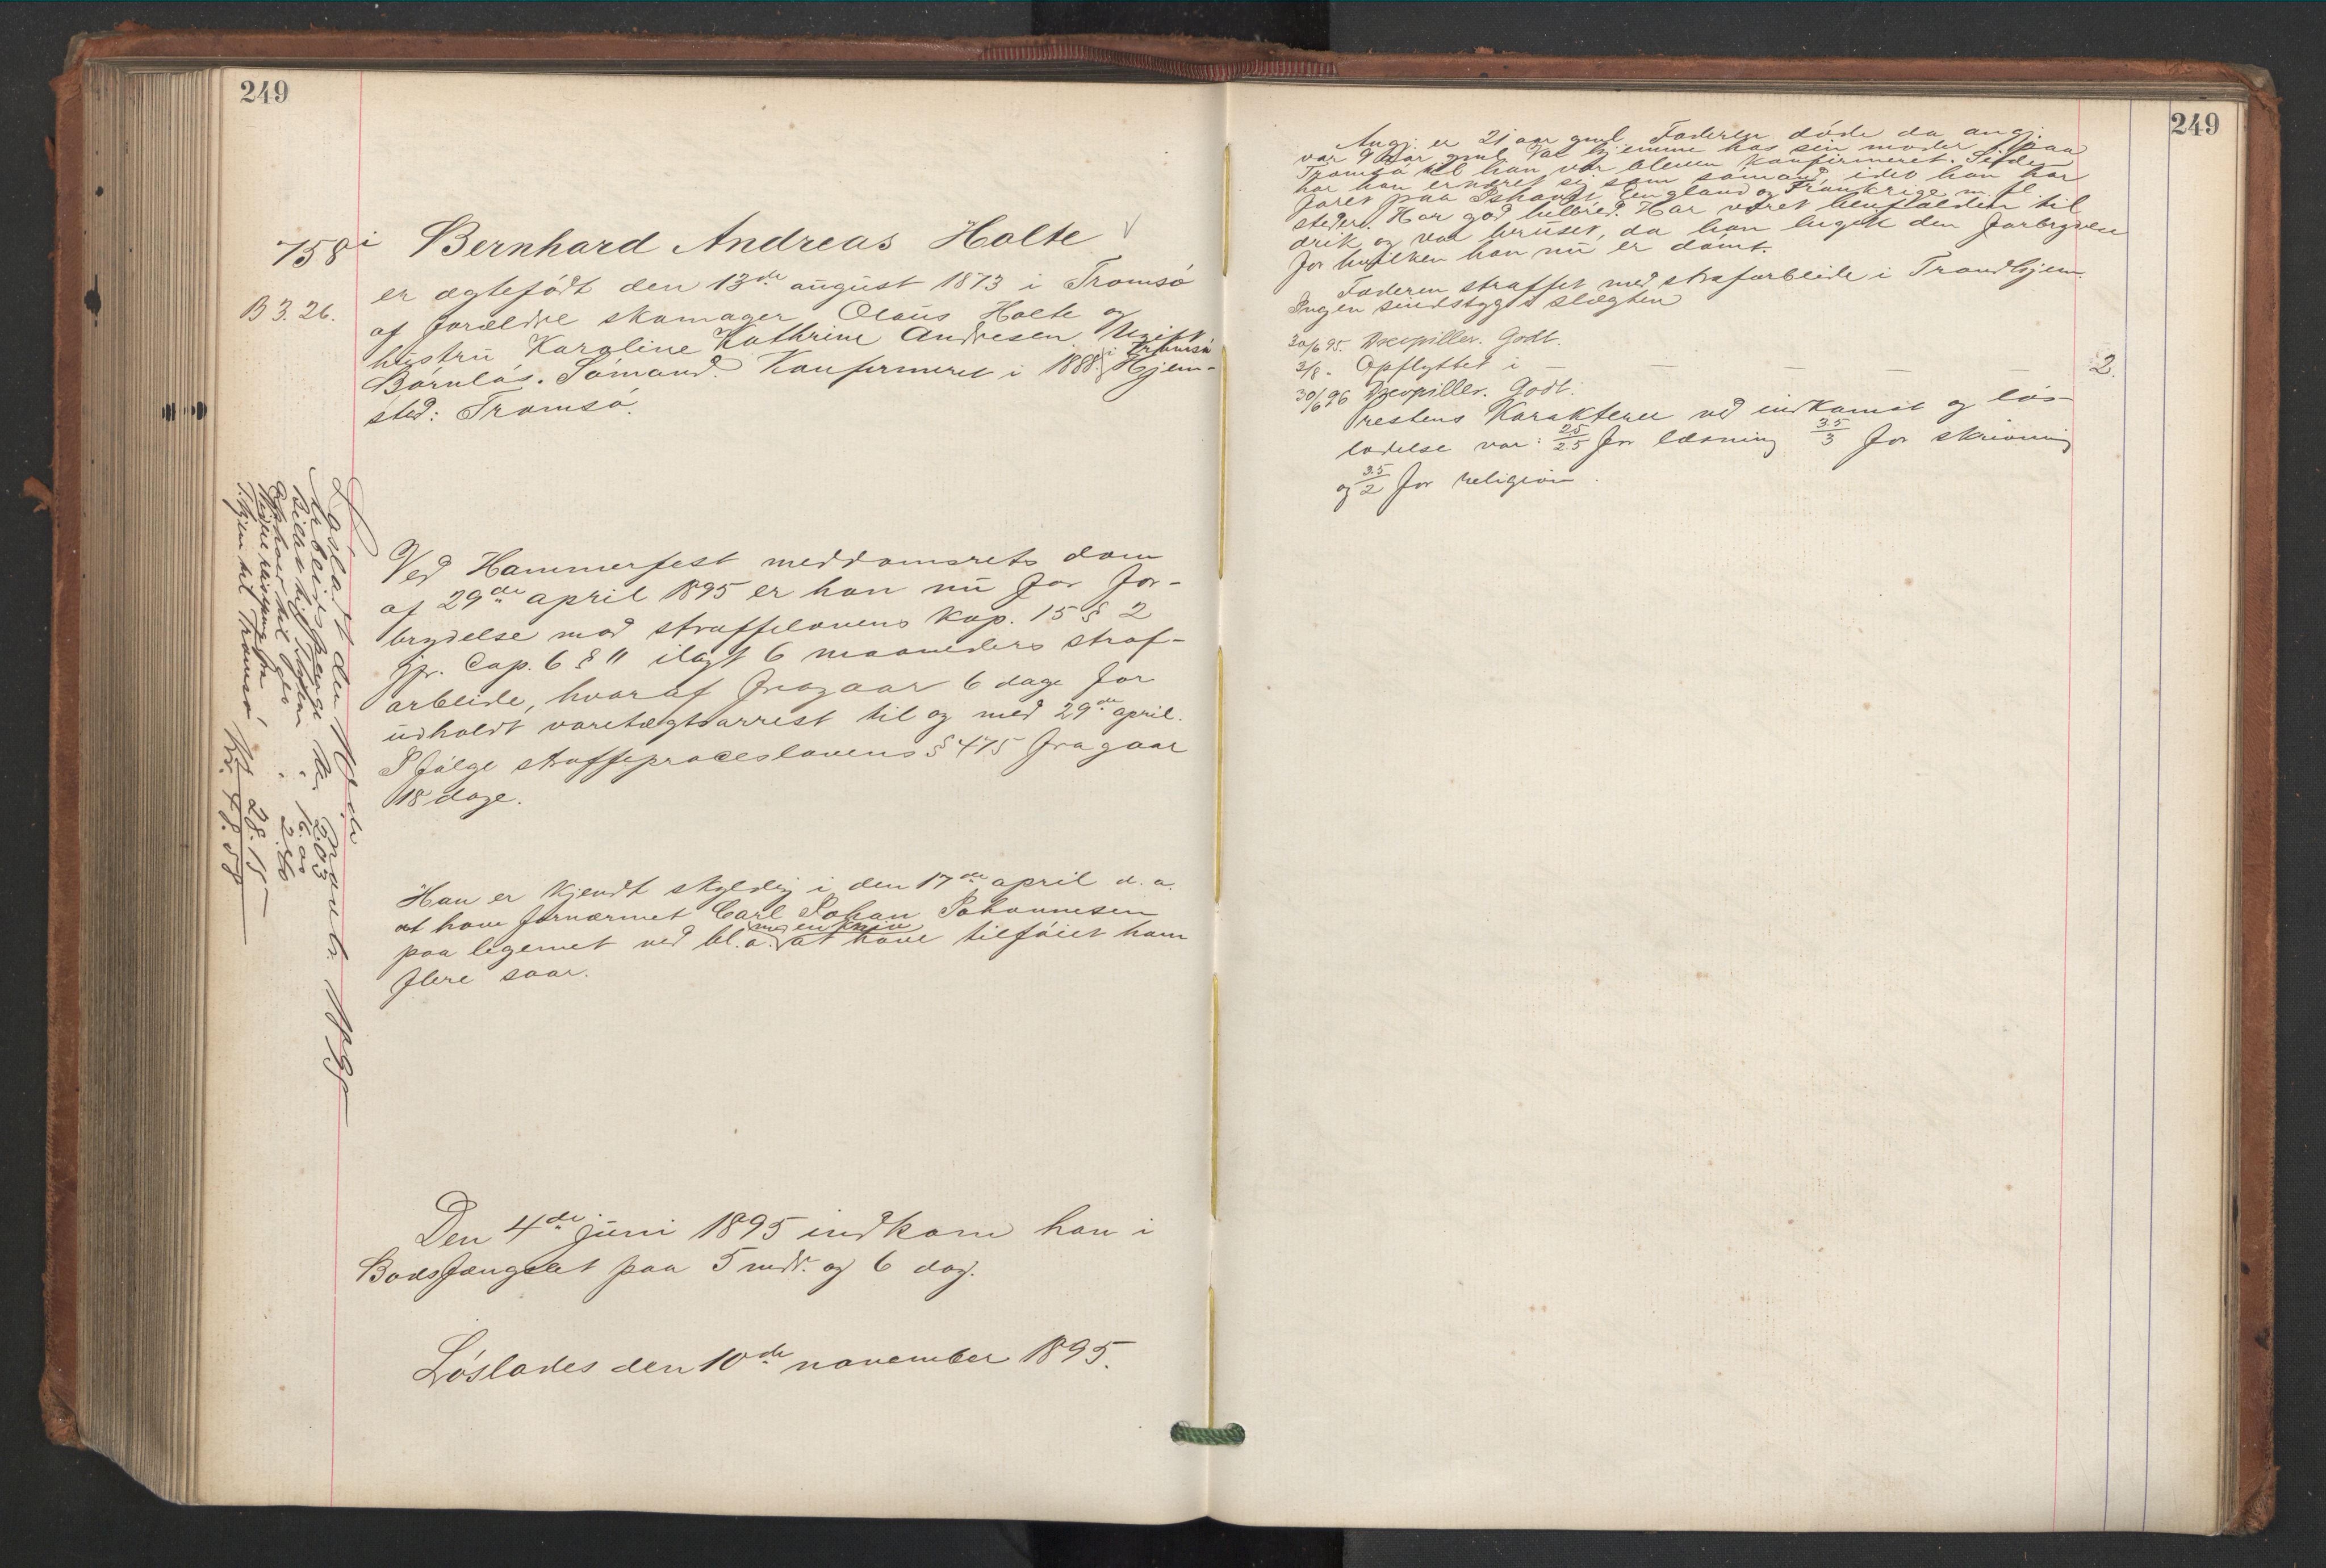 249
758 i Bernhard Andreas Holte
B 3.26.
er ægtefödt den 13de august 1873 i Tromsö
af forældre skomager Olaus Holte og
hustru Karoline Kathrine Andresen. Ugift
Börnlös. Sömand. Konfirmeret i 1888 i Tromsö Hjem-
sted: Tromsö.
Löslodt den 10de Novembr. 1895
Arbeidspenge Kr. 2.03
Bidrag til 16.00
Ophold til do 2.40
Videre reisepenge fra
Tr.hjem til Tromsö Kr. 28.15
Kr. 48.58
Ved Hammerfest meddomsrets dom
af 29de april 1895 er han nu for for-
brydelse mod straffelovens kap. 15 § 2
jfr. Cap. 6 § 11 ilagt 6 maaneders straf-
arbeide, hvoraf fragaar 6 dage for
udholdt varetægtsarrest til og med 29de april.
I fölge straffeproceslovens § 475 fragaar
18 dage.
Han er kjendt skyldig i den 17de april d. a.
at have fornærmet Carl Johan Johannesen
paa legemet ved bl.a. med en kniv at have tilföiet ham
flere saar.
Den 4de juni 1895 indkom han i
Bodsfængslet paa 5 mdr. og 6 dag.
Löslades den 10de november 1895.
249
Angj. er 21 aar gml. Faderen döde da angj.
var 9 aar gml. Var hjemme hos sin moder paa
Tromsö til han var bleven konfirmeret. Siden
har han ernæret sig som sömand, idet han har
faret paa Ishavet, England og Frankrige m. fl.
steder. Har god helbred. Har været henfalden til
drik og var beruset, da han begik den forbrydelse
for hvilken han nu er dömt.
Faderen straffet med strafarbeide i Trondhjem.
Ingen sindssyge i slægten
30/6 95. Discipliner. Godt.
3/8 - Opflyttet i — — — — 2.
30/6 96 Discipliner. Godt.
Prestens Karakterer ved indkomst og lös-
ladelse var: 2.5/2.5 for læsning 3.5/3 for skrivning
og 3.5/2 for religion.